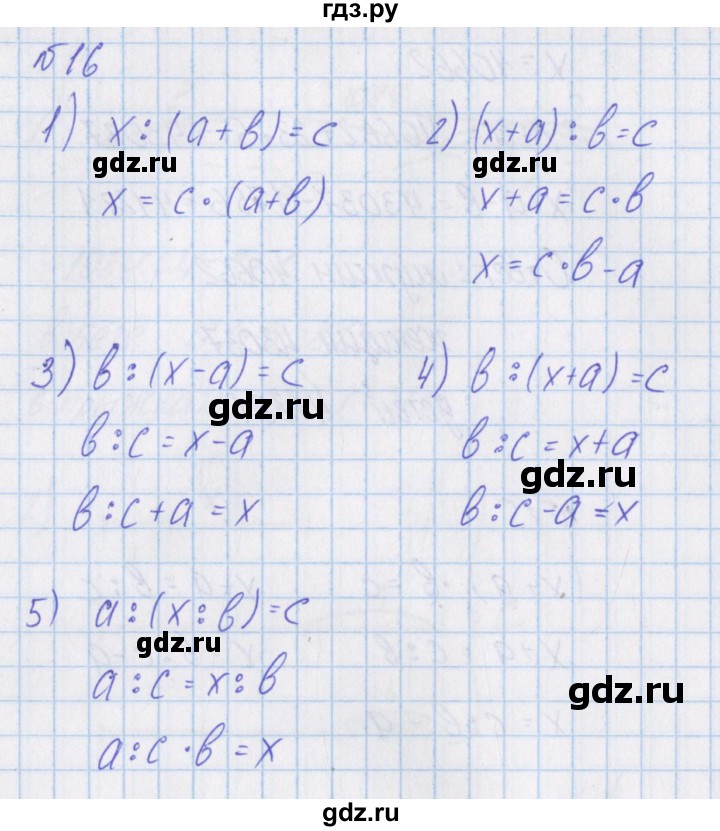 гдз.ру
№16
1) x : (a + b) = c
gdz.ru
x = c · (a+b)
2) (x+a) : b = c
gdz.ru
x + a = c · b
x = c · b - a
3) b : (x - a) = c
gdz.ru
b : c = x - a
b : c + a = x
4) b : (x+a) = c
b : c = x + a
gdz.ru
b : c - a = x
5) a : (x : b) = c
gdz.ru
a : c = x : b
gdz.ru
a : c · b = x
gdz.ru